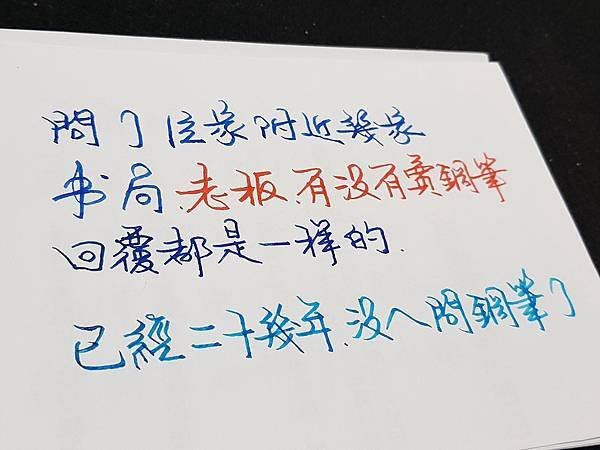 問了住家附近幾家
书局.老板.有没有賣鋼筆
回覆都是一样的.
已經二十幾年.没人問鋼筆了